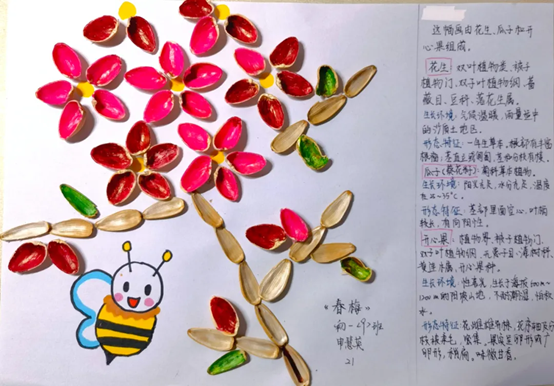 这幅画由花生、瓜子和开
心果组成。
花生：双叶植物类、被子
植物门、双子叶植物纲、蔷
薇目、豆科、落花生属。
生长环境：气候温暖，雨量适中
的沙质土地区。
形态特征：一年生草本，根部有丰富
根瘤；茎直立或匍匐，茎和分枝有棱。
瓜子（葵花籽）：菊科草本植物。
生长环境：阳光充足，水分充足，温度
形态特征：茎部里面空心，叶柄
较长，有向阳性。
开心果：植物界、被子植物门、
双子叶植物纲、无患子目、漆树科、
黄连木属、开心果种。
生长环境：
水。
形态特征：花雌雄异株，
卵形，
《春梅》
初一<9>班
申慧英
21